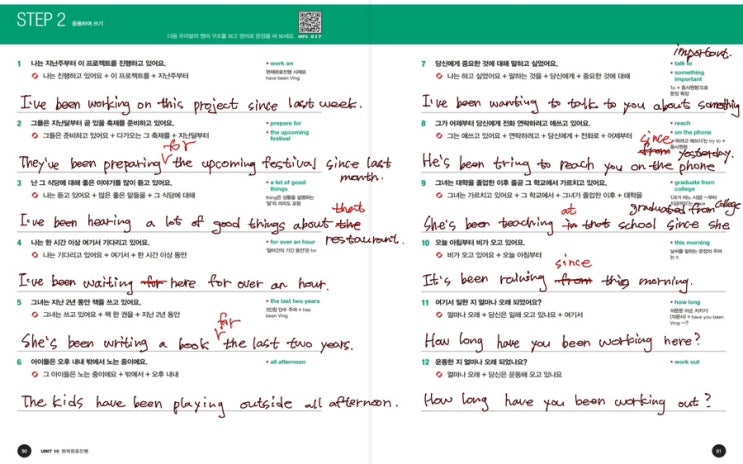 STEP 2 응용하여 쓰기
다음 우리말의 영어 구조를 보고 영어로 문장을 써 보세요. MP3 017
1 나는 지난주부터 이 프로젝트를 진행하고 있어요.
나는 진행하고 있어요 + 이 프로젝트를 + 지난주부터
work on
현재완료진행 시제로
have been Ving
I've been working on this project since last week.
2 그들은 지난달부터 곧 있을 축제를 준비하고 있어요.
그들은 준비하고 있어요 + 다가오는 그 축제를 + 지난달부터
prepare for
the upcoming
festival
for
They've been preparing the upcoming festival since last
month.
3 난 그 식당에 대해 좋은 이야기를 많이 듣고 있어요.
나는 듣고 있어요 + 많은 좋은 말들을 + 그 식당에 대해
a lot of good
things
that
I've been hearing a lot of good things about the
restaurant.
4 나는 한 시간 이상 여기서 기다리고 있어요.
나는 기다리고 있어요 + 여기서 + 한 시간 이상 동안
for over an hour
I've been waiting for here for over an hour.
5 그녀는 지난 2년 동안 책을 쓰고 있어요.
그녀는 쓰고 있어요 + 책 한 권을 + 지난 2년 동안
the last two years
3인칭 단수 주어 + has
been Ving
for
She's been writing a book the last two years.
6 아이들은 오후 내내 밖에서 노는 중이에요.
그 아이들은 노는 중이에요 + 밖에서 + 오후 내내
all afternoon
The kids have been playing outside all afternoon.
90 UNIT 10 현재완료진행
7 당신에게 중요한 것에 대해 말하고 싶었어요.
나는 하고 싶었어요 + 말하는 것을 + 당신에게 + 중요한 것에 대해
talk to
something
important
important.
I've been wanting to talk to you about something
8 그가 어제부터 당신에게 전화 연락하려고 애쓰고 있어요.
그는 애쓰고 있어요 + 연락하려고 + 당신에게 + 전화로 + 어제부터
reach
on the phone
since
from yesterday.
He's been tring to reach you on the phone
9 그녀는 대학을 졸업한 이후 줄곧 그 학교에서 가르치고 있어요.
그녀는 가르치고 있어요 + 그 학교에서 + 그녀가 졸업한 이후 + 대학을
graduate from
college
graduated from college
at
She's been teaching in that school since she
10 오늘 아침부터 비가 오고 있어요.
비가 오고 있어요 + 오늘 아침부터
this morning
since
It's been raining from this morning.
11 여기서 일한 지 얼마나 오래 되었어요?
얼마나 오래 + 당신은 일해 오고 있나요 + 여기서
how long
How long have you been working here?
12 운동한 지 얼마나 오래 되었나요?
얼마나 오래 + 당신은 운동해 오고 있나요
work out
How long have you been working out?
91